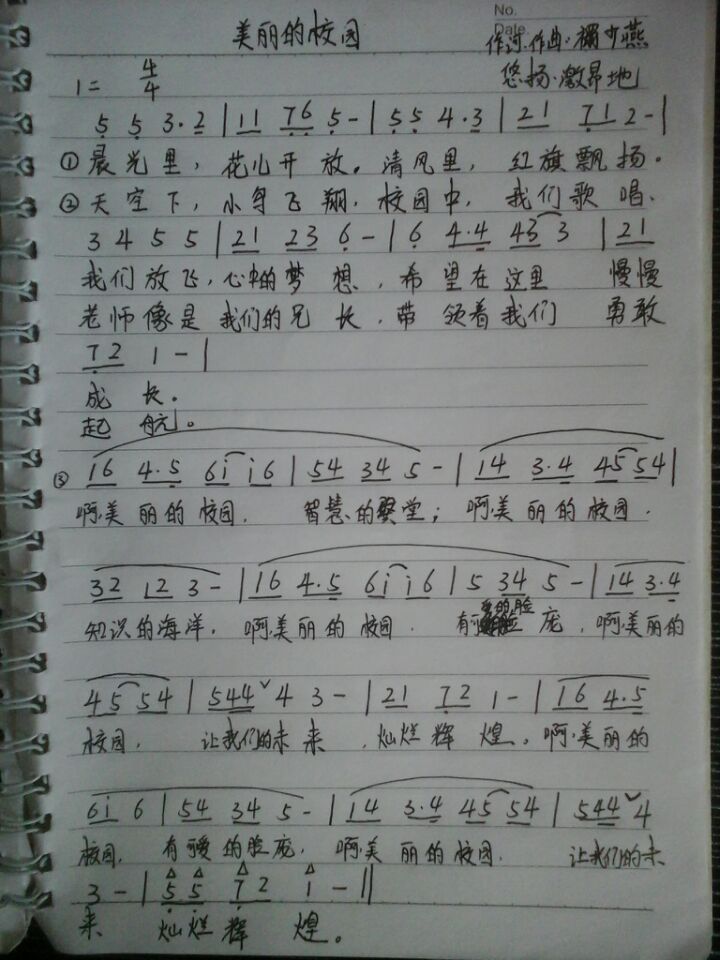 No.
Date
美丽的校园
作词.作曲.禤少燕
1= 4/4
悠扬.激昂地
5 5 3·2 | 11 76 5- | 55 4·3 | 21 71 2-|
①晨光里，花儿开放。清风里，红旗飘扬。
②天空下，小鸟飞翔，校园中，我们歌唱、
3 4 5 5 | 21 23 6- | 6 4·4 43 3 | 21
我们放飞，心中的梦想，希望在这里 慢慢
老师像是我们的兄长，带领着我们 勇敢
72 1-|
成长。
起航。
③ 16 4·5 6i i6 | 54 34 5- | 14 3·4 45 54|
啊，美丽的校园. 智慧的圣堂；啊，美丽的校园.
32 12 3- | 16 4·5 6i i6 | 5 34 5- | 14 3·4
知识的海洋，啊，美丽的校园. 有可爱的脸庞，啊，美丽的
45 54 | 544ˇ4 3- | 21 72 1- | 16 4·5
校园, 让我们的未来，灿烂辉煌。啊，美丽的
6i 6 | 54 34 5- | 14 3·4 45 54 | 544ˇ4
校园, 有可爱的脸庞，啊，美丽的校园. 让我们的未
3- | 55 72 1-‖
来 灿烂辉煌。